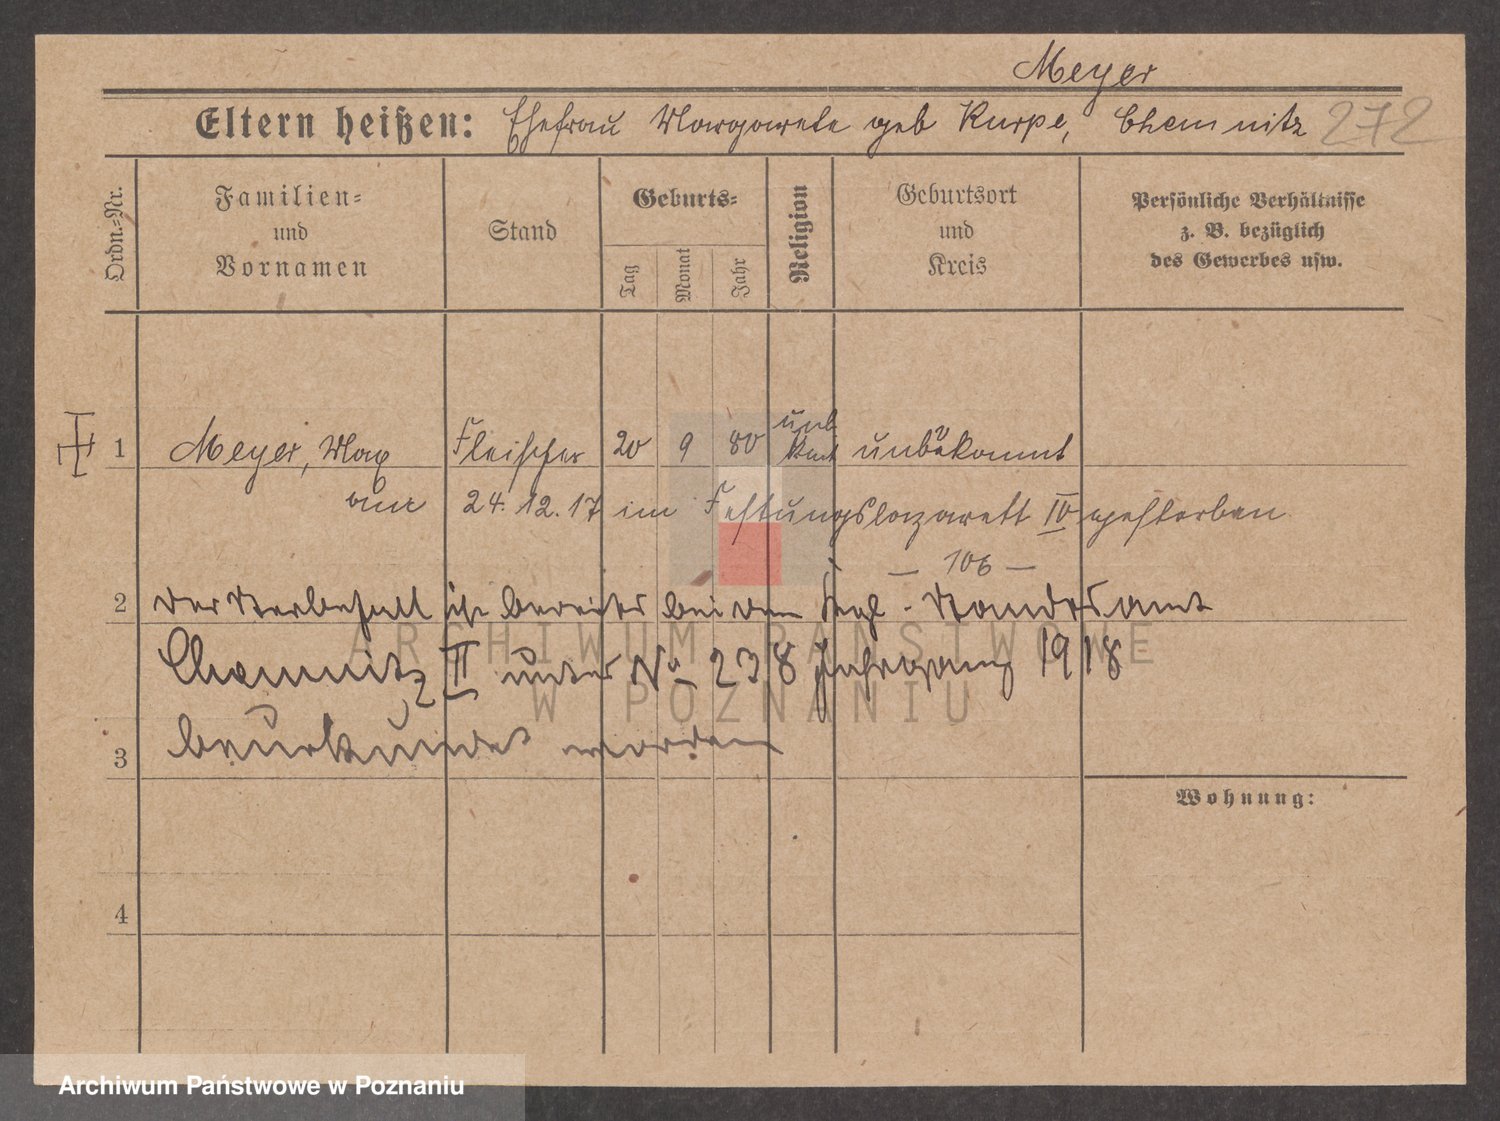 Meyer
Eltern heißen: Ehefrau Margarete geb Kurpe, Chemnitz 272
Ordn.-Nr.
Familien-
und
Vornamen
Stand
Geburts-
Tag
Monat
Jahr
Religion
Geburtsort
und
Kreis
Persönliche Verhältnisse
z. B. bezüglich
des Gewerbes usw.
1 Meyer, Max Fleischer 20 9 80 unbekannt
am 24.12.17 im Festungslazarett IV gestorben
— 106 —
2 Der Sterbefall ist bereits bei dem Kgl. Standesamt
Chemnitz II unter No 238 Jahrgang 1918
3 beurkundet worden
Wohnung:
4
ARCHIWUM PAŃSTWOWE
W POZNANIU
Archiwum Państwowe w Poznaniu